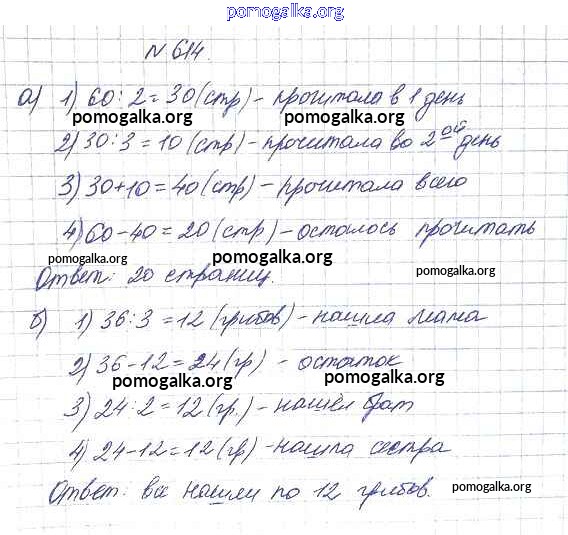 pomogalka.org
N 614.
а) 1) 60 : 2 = 30 (стр) – прочитала в 1 день
pomogalka.org pomogalka.org
2) 30 : 3 = 10 (стр) – прочитала во 2ой день
3) 30+10 = 40 (стр) – прочитала всего
pomogalka.org pomogalka.org
4) 60 – 40 = 20 (стр) – осталось прочитать
pomogalka.org pomogalka.org
Ответ: 20 страниц.
pomogalka.org
б) 1) 36 : 3 = 12 (грибов) – нашла мама
2) 36 – 12 = 24 (гр) – остаток
pomogalka.org pomogalka.org
3) 24 : 2 = 12 (гр.) – нашёл брат
4) 24 – 12 = 12 (гр) – нашла сестра
pomogalka.org pomogalka.org
Ответ: все нашли по 12 грибов.
pomogalka.org